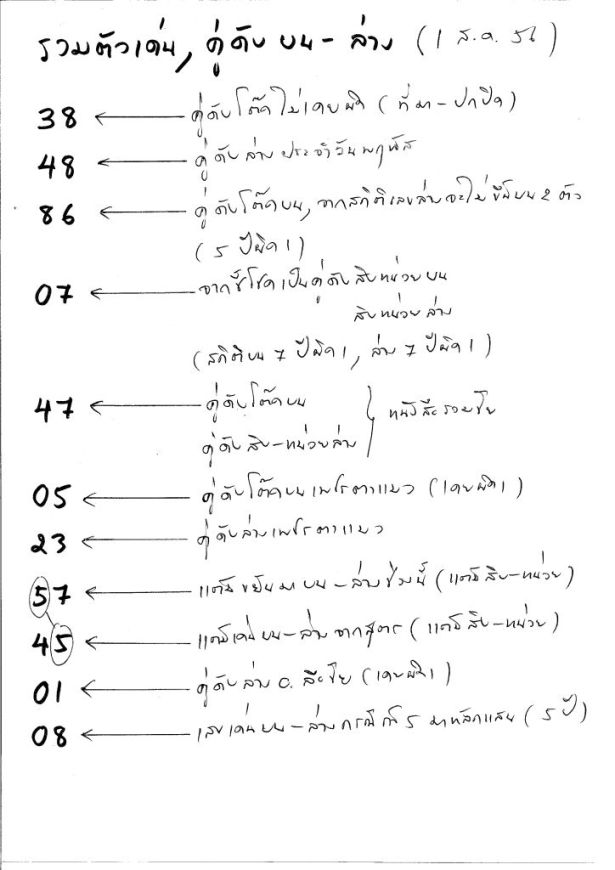 รวมตัวเด่น, คู่ดับ บน - ล่าง (1 ส.ค. 56)
38 ← คู่ดับโต๊ดไม่เคยผิด (ที่มา - ปกปิด)
48 ← คู่ดับล่าง ประจำวันพฤหัส
86 ← คู่ดับโต๊ดบน, จากสถิติเลขล่างจะไม่ขึ้นบน 2 ตัว
(5 ปีผิด 1)
07 ← จาก โชคเป็นคู่ดับสิบหน่วยบน
สิบหน่วยล่าง
(สถิติบน 7 ปีผิด 1, ล่าง 7 ปีผิด 1)
47 ← คู่ดับโต๊ดบน
คู่ดับสิบ-หน่วยล่าง } รวมชัย
05 ← คู่ดับโต๊ดบนเพชรตาแมว (เคยผิด 1)
23 ← คู่ดับล่างเพชรตาแมว
57 ← แต้มขยันมา บน - ล่างช่วงนี้ (แต้มสิบ-หน่วย)
45 ← แต้มเด่นบน-ล่างจากสูตร (แต้มสิบ-หน่วย)
01 ← คู่ดับล่าง อ. (เคยผิด 1)
08 ← เลขเด่นบน-ล่างกรณี 5 มาหลักแสน (5 ปี)